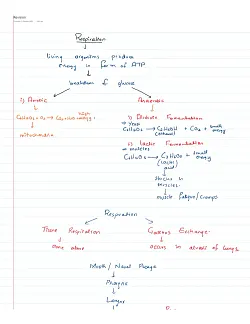 Revision
Respiration
living organisms produce
energy in form of ATP
breakdown of glucose
i) Aerobic
Anaerobic
C₆H₁₂O₆ + O₂ → CO₂ + H₂O + high energy.
mitochondria.
i) Ethanolic Fermentation
→ Yeast
C₆H₁₂O₆ → C₂H₅OH + CO₂ + small energy
(ethanol)
ii) Lactic Fermentation
→ muscles
C₆H₁₂O₆ → C₃H₆O₃ + small energy
(Lactic acid)
muscles.
muscle fatigue/cramps
Respiration
Tissue Respiration
Gaseous Exchange
occurs in alveoli of lungs
Mouth / Nasal Passage
Pharynx
Larynx